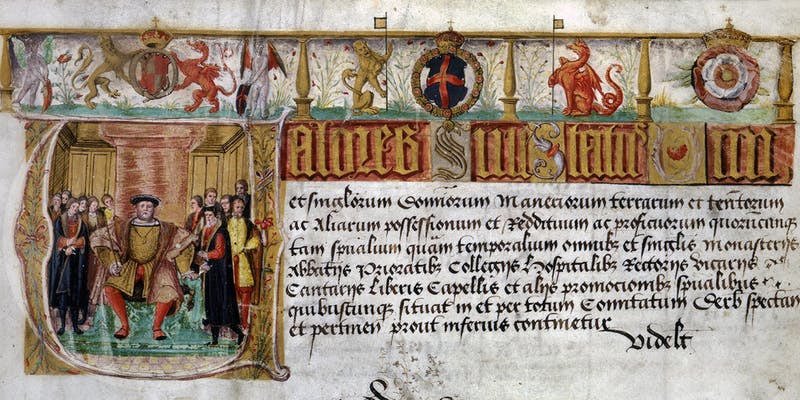 Valores Siue Status
et singlorum Domniorum Maneriorum terrarum et tentorum
ac Aliarum possessionum et Reddituum ac proficuorum quorumcunqꝫ
tam spualium quam temporalium omnibꝫ et singlis monasterijs
Abbatijs Prioratibꝫ Collegijs Hospitalibꝫ Rectorijs vicarijs
Cantarijs Liberis Capellis et alijs promocionibꝫ spualibus
quibuscunque situat in et per totum Comitatum Derb spectan
et pertinen prout inferius continetur
Videlt